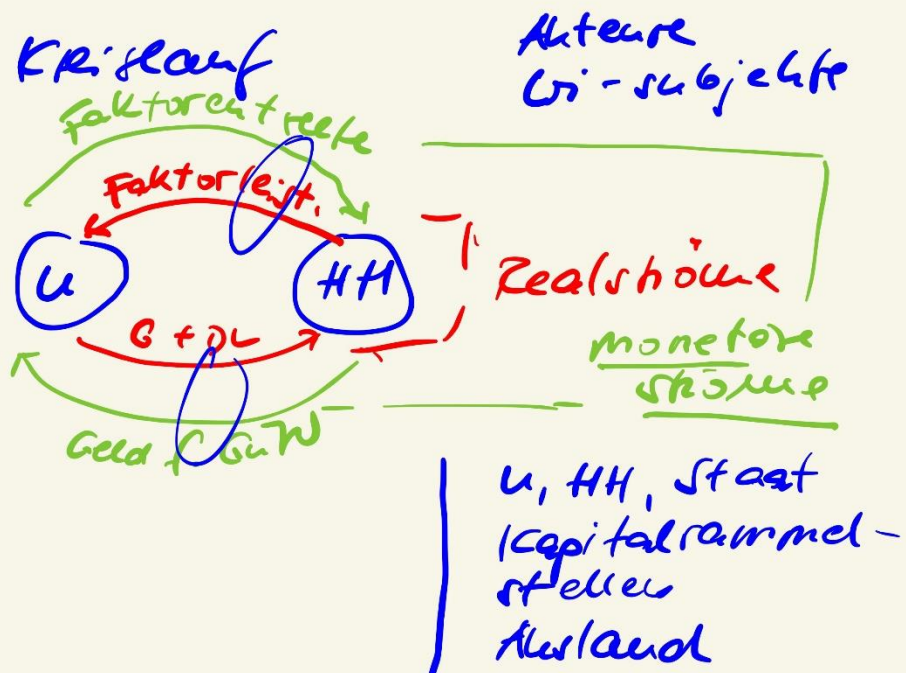 Kreislauf
Akteure
Wi-subjekte
Faktorentgelte
Faktorleist.
U
HH
Realströme
G + DL
monetäre
Ströme
Geld f
U, HH, Staat
Kapitalsammel-
stellen
Ausland